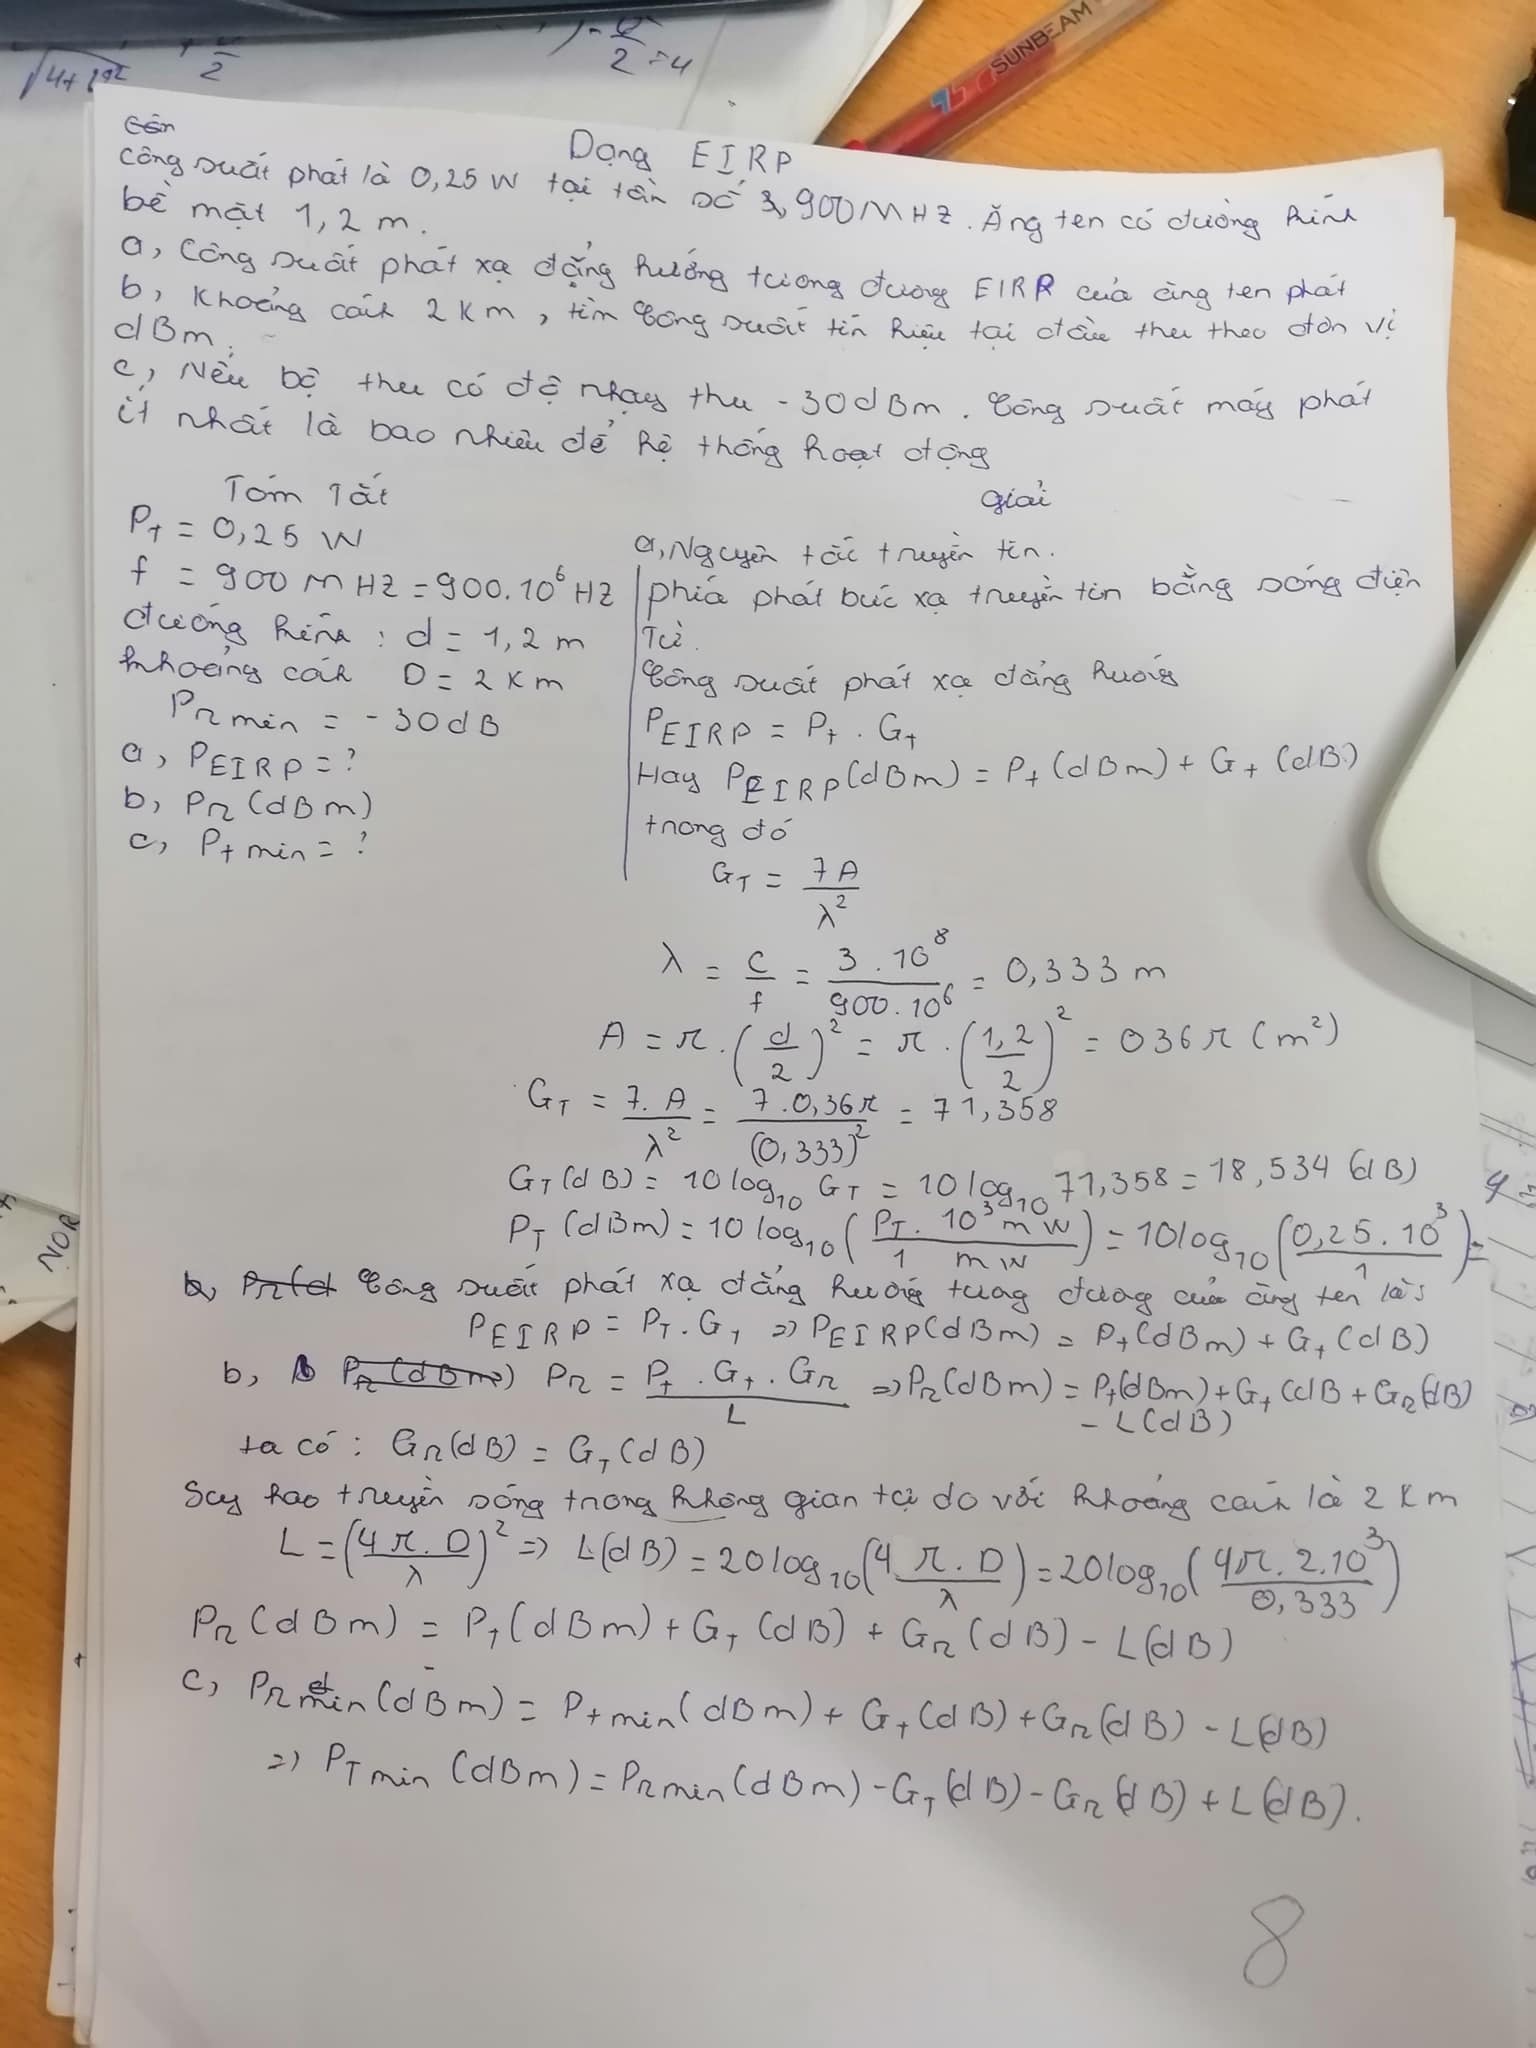 SUNBEAM
Dạng EIRP
Công suất phát là 0,25 W tại tần số 900 MHZ. Ăng ten có đường kính
bề mặt 1,2 m.
a, Công suất phát xạ đẳng hướng tương đương EIRP của ăng ten phát
b, Khoảng cách 2 Km, tìm công suất tín hiệu tại đầu thu theo đơn vị
dBm.
c, Nếu bộ thu có độ nhạy thu -30dBm. Công suất máy phát
ít nhất là bao nhiêu để hệ thống hoạt động
Tóm Tắt
P_t = 0,25 W
f = 900 MHZ = 900.10^6 HZ
đường kính : d = 1,2 m
khoảng cách D = 2 Km
P_r min = -30dB
a, P_EIRP = ?
b, P_r (dBm)
c, P_t min = ?
Giải
a, Nguyên tắc truyền tin.
phía phát bức xạ truyền tin bằng sóng điện
Từ.
Công suất phát xạ đẳng hướng
P_EIRP = P_t . G_t
Hay P_EIRP (dBm) = P_t (dBm) + G_t (dB)
trong đó
G_T = 7A/λ^2
λ = c/f = 3.10^8/900.10^6 = 0,333 m
A = π.(d/2)^2 = π.(1,2/2)^2 = 036π (m^2)
G_T = 7.A/λ^2 = 7.0,36π/(0,333)^2 = 71,358
G_T (dB) = 10log_10 G_T = 10log_10 71,358 = 18,534 (dB)
P_T (dBm) = 10 log_10 (P_T.10^3 mW/1 mW) = 10log_10 (0,25.10^3/1) =
Công suất phát xạ đẳng hướng tương đương của ăng ten là:
P_EIRP = P_T.G_T => P_EIRP (dBm) = P_t (dBm) + G_t (dB)
b, P_r = P_t.G_t.G_r/L => P_r (dBm) = P_t (dBm) + G_t (dB + G_r (dB)
- L(dB)
ta có : G_r (dB) = G_T (dB)
Suy hao truyền sóng trong không gian tự do với khoảng cách là 2 Km
L = (4π.D/λ)^2 => L(dB) = 20log_10 (4π.D/λ) = 20log_10 (4π.2.10^3/0,333)
P_r (dBm) = P_T (dBm) + G_T (dB) + G_r (dB) - L(dB)
c, P_r min (dBm) = P_t min (dBm) + G_t (dB) + G_r (dB) - L(dB)
=> P_T min (dBm) = P_r min (dBm) - G_T (dB) - G_r (dB) + L(dB).
8
NOR